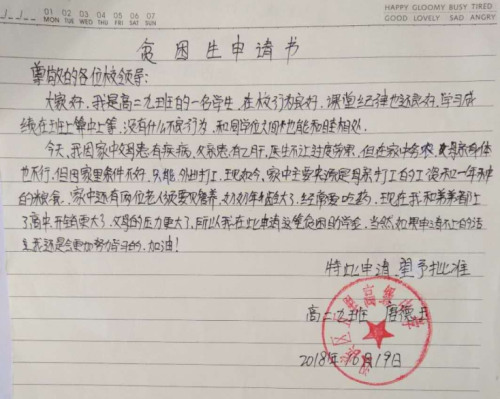 01 02 03 04 05 06 07
MON TUE WED THU FRI SAT SUN
HAPPY GLOOMY BUSY TIRED
GOOD LOVELY SAD ANGRY
贫困生申请书
尊敬的各位校领导:
大家好,我是高二九班的一名学生,在校行为良好,课堂纪律也较良好,学习成
绩在班上算中上等,没有什么不良行为,和同学之间也能和睦相处.
今天,我因家中母患有疾病,父亲患有乙肝,医生不让过度劳累,但在家中务农,母亲身体
也不行,但因家庭条件不好,只能外出打工,现如今,家中主要来源是母亲打工的工资和一年种
的粮食.家中还有两位老人需要赡养,奶奶年龄大了,经常要吃药,现在我和弟弟都上
了高中,开销更大了,父母的压力更大了,所以我在此申请这笔贫困的学金,当然,如果申请不上的话
我还是会更加努力学习的,加油!
特此申请,望予批准
高二九班 唐德
2018年10月19日
高级中学